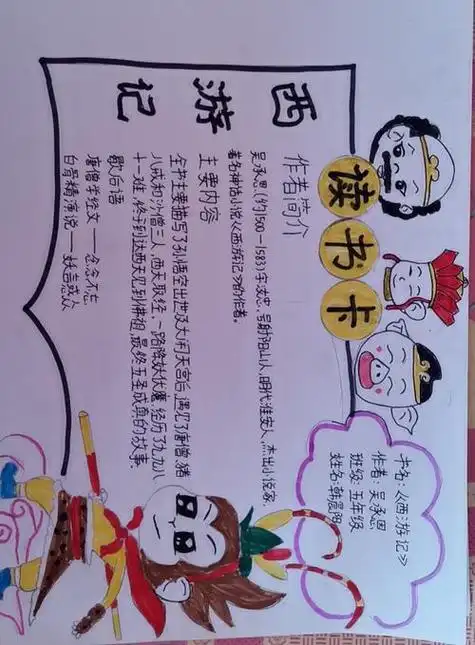 读书卡
西游记
作者简介
吴承恩(约1500-1583)字汝忠,号射阳山人,明代淮安人,杰出小说家,
著名神话小说《西游记》的作者。
主要内容
全书主要描写了孙悟空出世及大闹天宫后,遇见了唐僧,猪
八戒和沙僧三人,西天取经,一路降妖伏魔,经历了九九八
十一难,终于到达西天见到佛祖,最终五圣成真的故事
歇后语
唐僧念经文——念念不忘
白骨精演说——妖言惑众
书名:《西游记》
作者:吴承恩
班级:五年级
姓名:韩晨阳